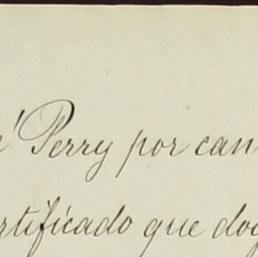 Perry por can
rtificado que doy